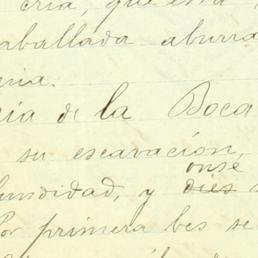 cria, que esta
aballada aburra
nia.
cia de la Boca
su escavación,
onse
undidad, y dies
Por primera bes se